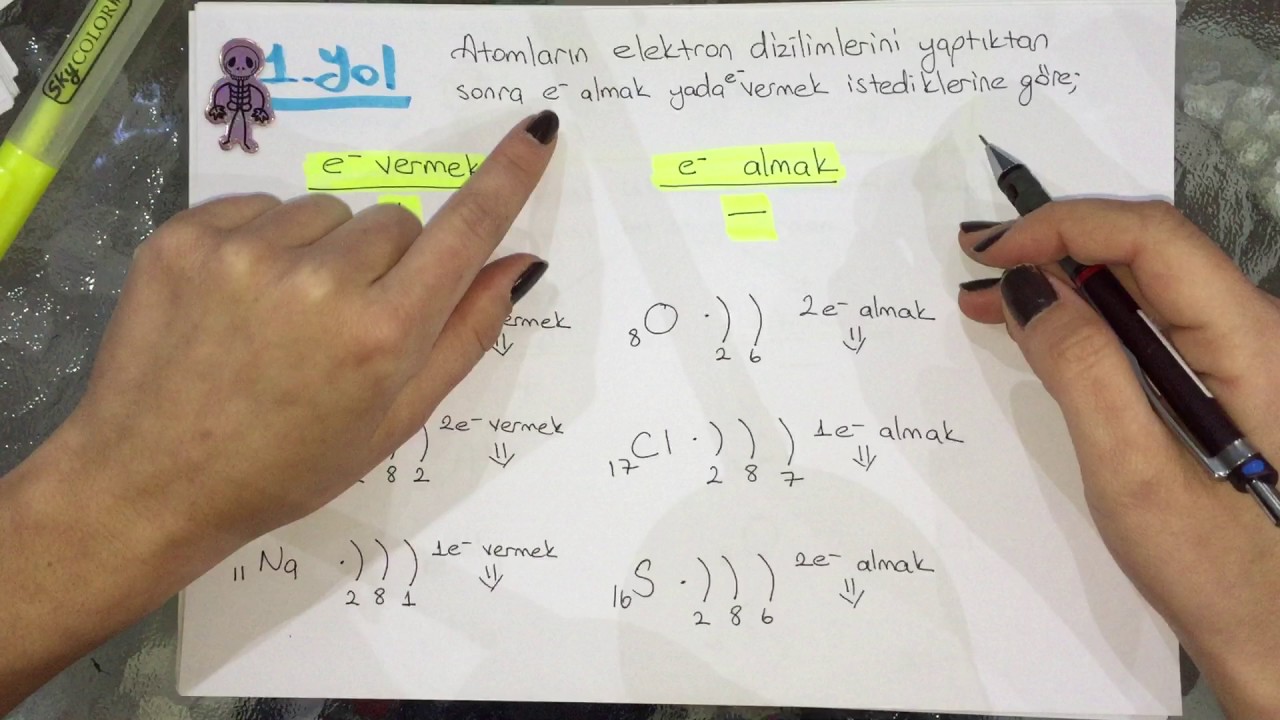 SKYCOLOR
1.Yol
Atomların elektron dizilimlerini yaptıktan
sonra e⁻ almak yada e⁻ vermek istediklerine göre;
e⁻ vermek
e⁻ almak
—
⇓
₈O ·) ) 2e⁻ almak
⇓
2 6
2e⁻ vermek
⇓
8 2
₁₇Cl ·) ) ) 1e⁻ almak
⇓
2 8 7
₁₁Na ·) ) ) 1e⁻ vermek
⇓
2 8 1
₁₆S ·) ) ) 2e⁻ almak
⇓
2 8 6